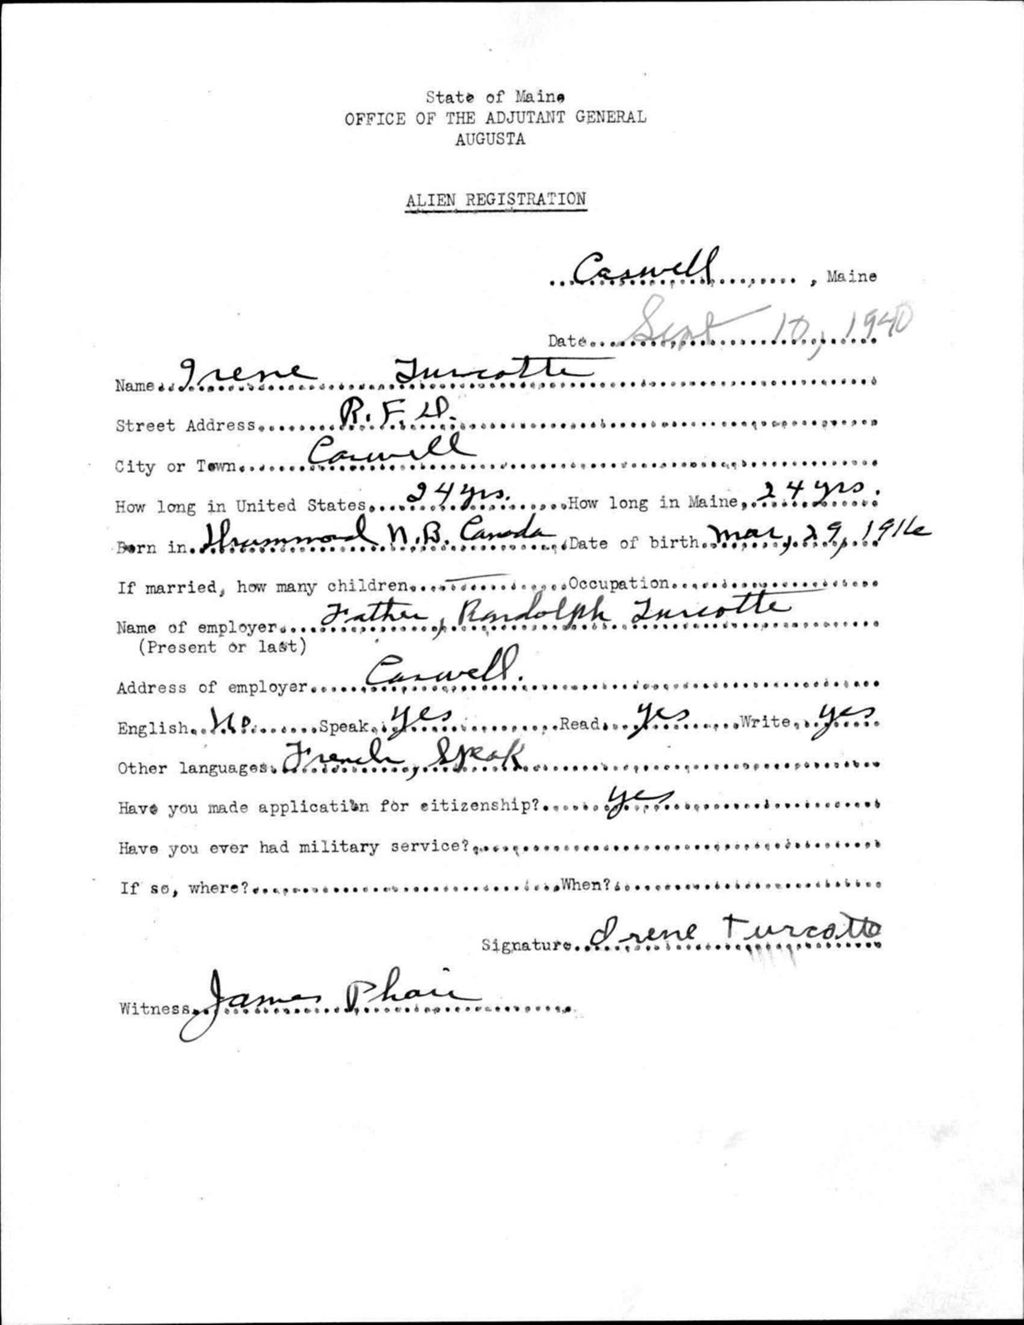 State of Maine
OFFICE OF THE ADJUTANT GENERAL
AUGUSTA
ALIEN REGISTRATION
Caswell, Maine
Date Sept 10, 1940
Name Irene Turcotte
Street Address R.F.D.
City or Town Caswell
How long in United States 24 yrs. How long in Maine 24 yrs.
Born in Drummond N.B. Canada Date of birth Mar, 29, 1916
If married, how many children — Occupation
Name of employer Father, Randolph Turcotte
(Present or last)
Address of employer Caswell.
English No. Speak yes Read yes Write yes
Other languages French, Speak
Have you made application for citizenship? yes
Have you ever had military service?
If so, where? When?
Signature Irene Turcotte
Witness James Phair